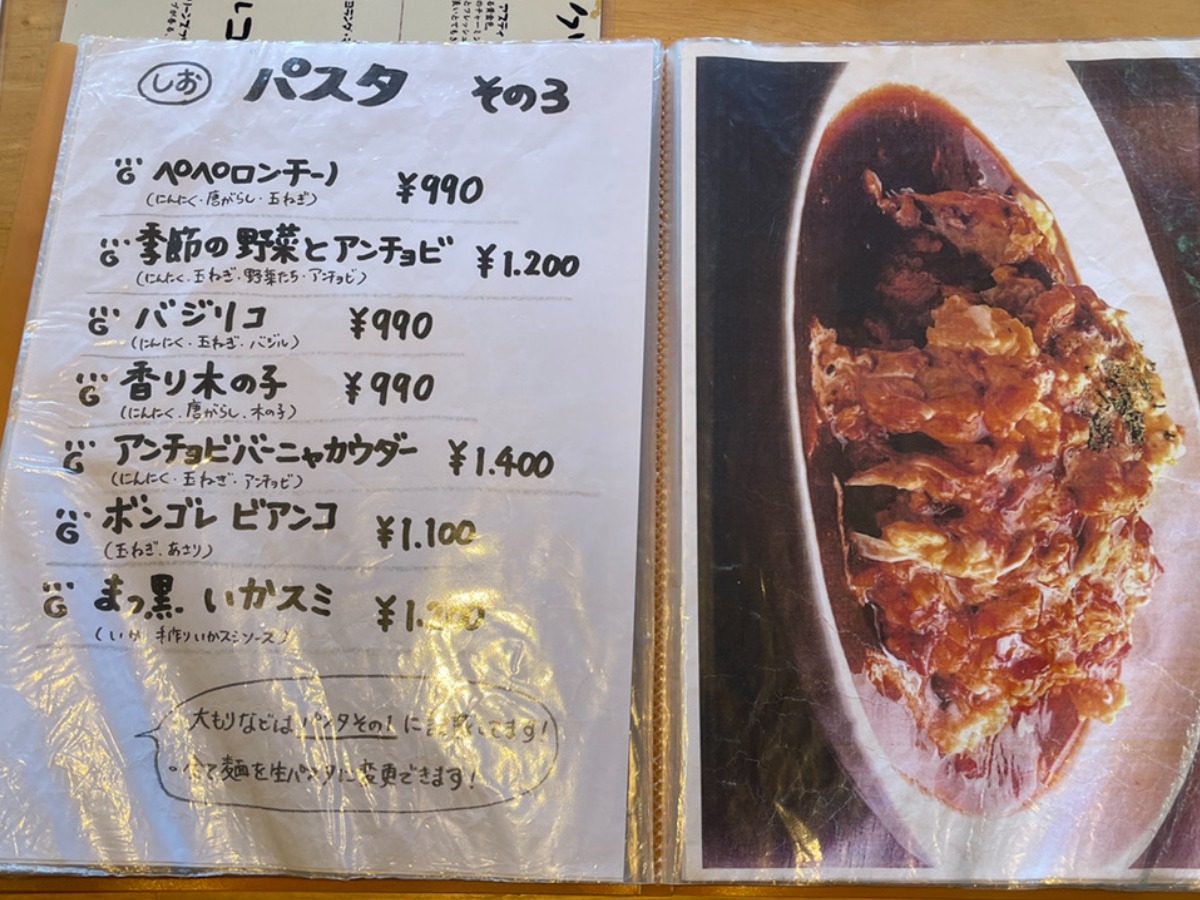 しお パスタ その3
G ペペロンチーノ ¥990
(にんにく・唐がらし・玉ねぎ)
G 季節の野菜とアンチョビ ¥1.200
(にんにく・玉ねぎ・野菜たち・アンチョビ)
G バジリコ ¥990
(にんにく・玉ねぎ・バジル)
G 香り木の子 ¥990
(にんにく・唐がらし・木の子)
G アンチョビバーニャカウダー ¥1.400
(にんにく・玉ねぎ・アンチョビ)
G ボンゴレ ビアンコ ¥1.100
(玉ねぎ・あさり)
G まっ黒 いかスミ
(いか 手作りいかスミソース)
大もりなどは パスタその1 に てます!
麺を生パスタに変更できます!